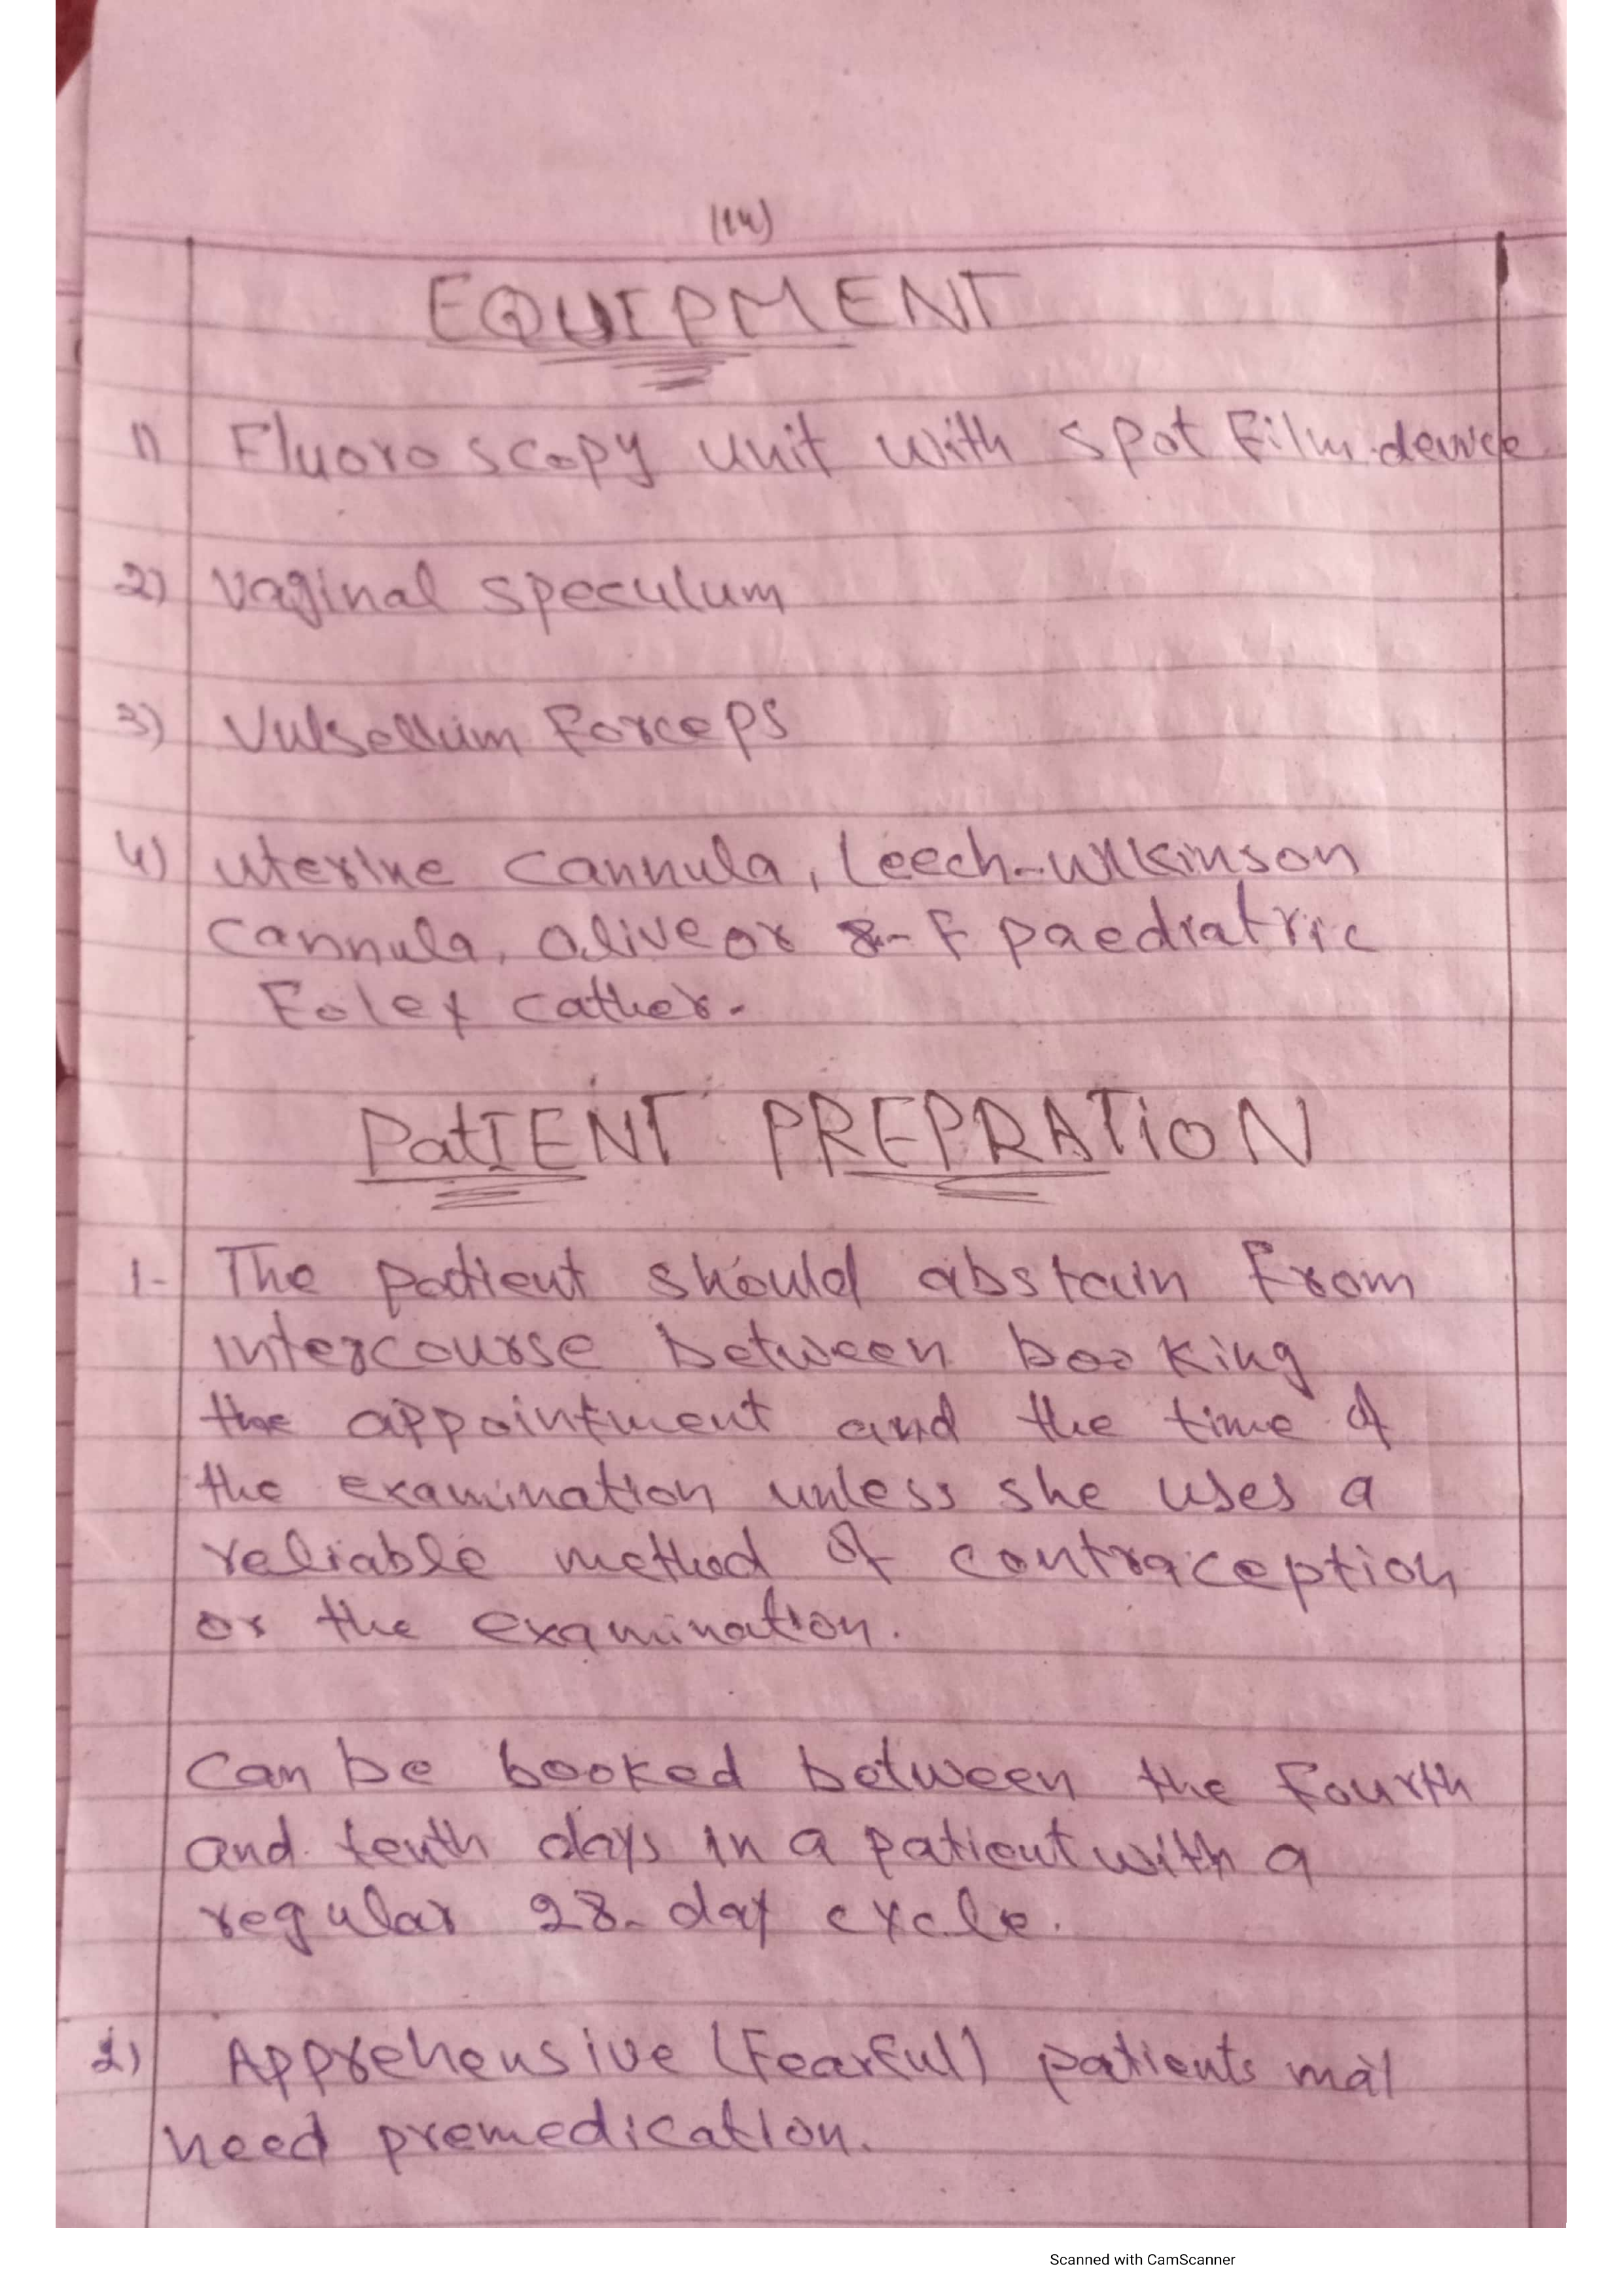 (14)
EQUIPMENT
1) Fluoroscopy unit with spot film device
2) Vaginal speculum
3) Vulsellum Forceps
4) uterine cannula, Leech-Wilkinson
cannula, olive or 8-F paediatric
Foley cather.
PatIENT PREPRATiON
1- The patient should abstain from
intercourse between booking
the appointment and the time of
the examination unless she uses a
reliable method of contraception
or the examination.
Can be booked between the fourth
and tenth days in a patient with a
regular 28-day cycle.
2) Apprehensive (Fearful) patients may
need premedication.
Scanned with CamScanner